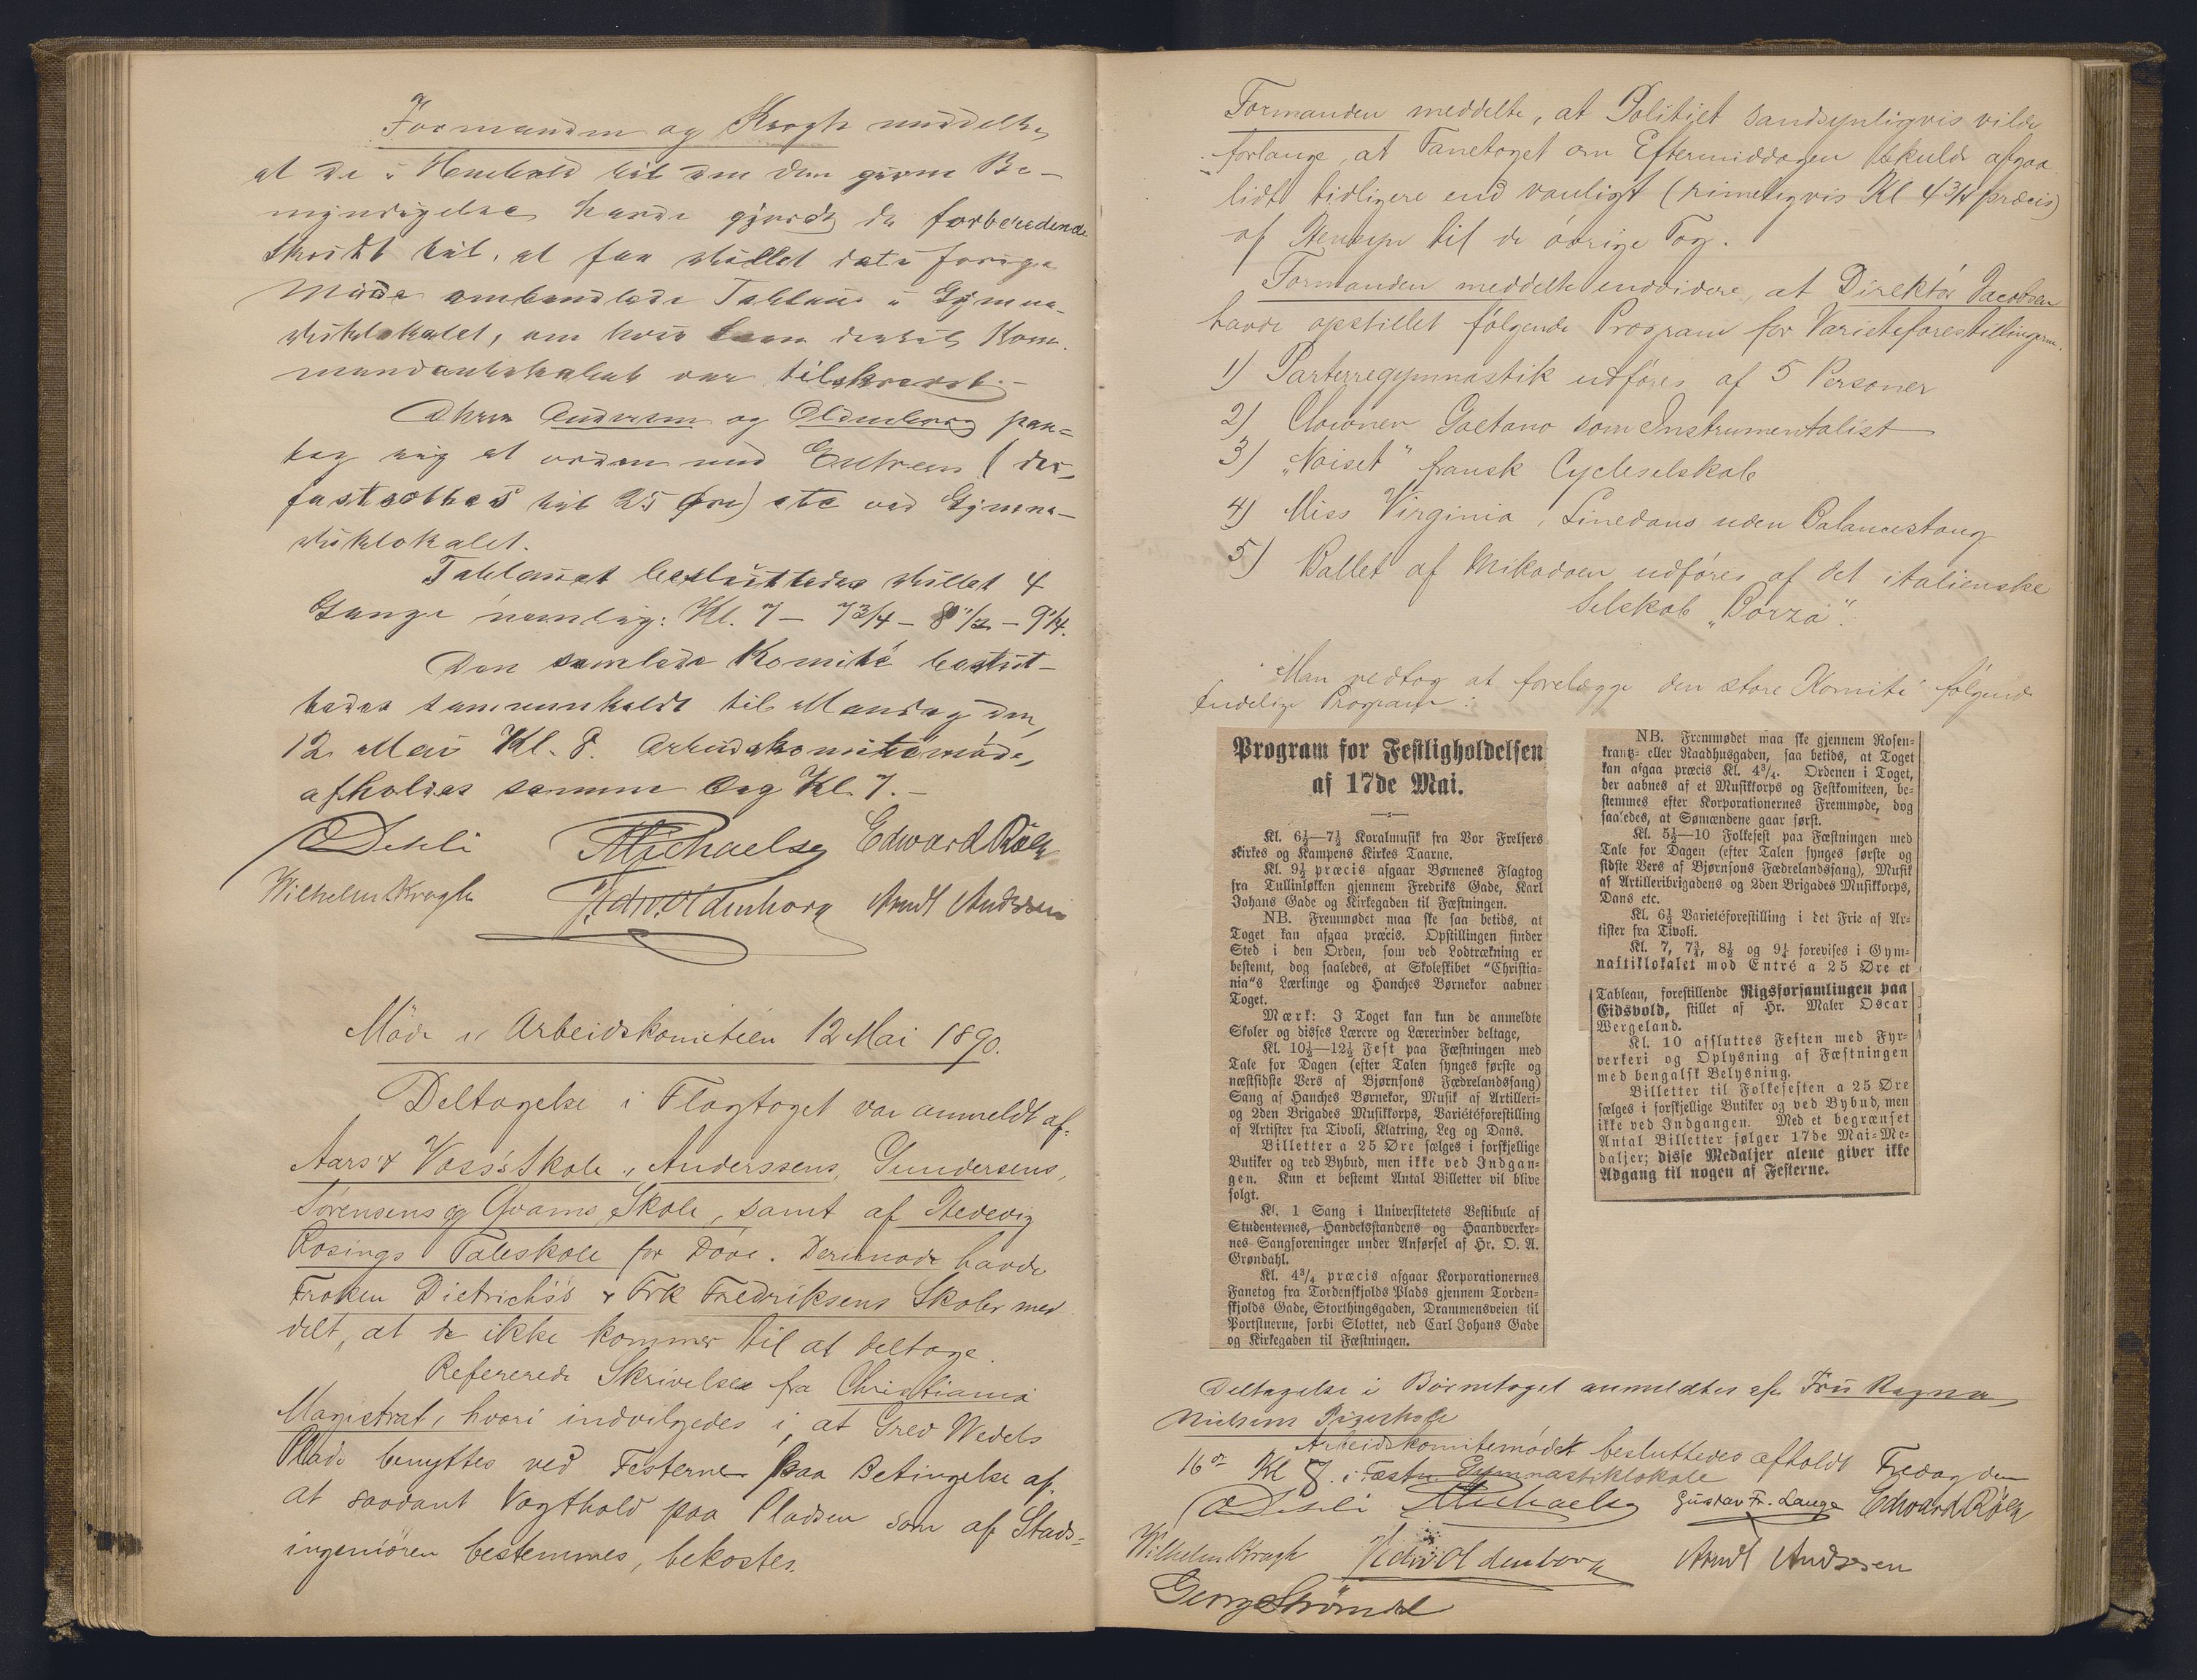 Formanden og Krogh meddelte,
at de i Henhold til den dem givne Be-
myndigelse havde gjordt de forberedende
Skridt til, at faa stillet det i forrige
Møde ombandlede Tableau i Gymna-
stiklokalet, om hvis Laan dertil Kom-
mandantskabet var tilskrevet.-
D'Hrr. Andersen og Oldenborg paa=
tog sig at ordne med Entreen (der
fastsattes til 25 Øre) etc ved Gymna-
stiklokalet.
Tableauet besluttedes stillet 4
Gange nemlig: Kl. 7 - 7 3/4 - 8 1/2 - 9 1/4.
Den samlede Komité beslut-
tedes sammenkaldt til Mandag den
12 Mai Kl. 8. Arbeidskomitemøde
afholdes samme Dag Kl. 7.-
O Dehli Michaelsen Edward Röhr
Wilhelm Krogh Edw. Oldenborg Arndt Andersen
Möde i Arbeidskomitéen 12 Mai 1890.
Deltagelse i Flagtoget var anmeldt af:
Aars & Voss's Skole, Anderssens, Gundersens,
Sørensens og Qvams Skole, samt af Hedevig
Rosings Taleskole for Døve. Derimod havde
Frøken Dietrichs's & Frk Fredriksens Skoler med
delt, at de ikke kommer til at deltage.
Refererede Skrivelse fra Christiania
Magistrat, hvori indvilgedes i, at Grev Wedels
Plads benyttes ved Festerne paa Betingelse af,
at saadant Vagthold paa Pladsen som af Stads=
ingeniören bestemmes, bekostes.
Formanden meddelte, at Politiet sandsynligvis vilde
forlange, at Fanetoget om Eftermiddagen skulde afgaa
lidt tidligere end vanligt (rimeligvis Kl 4 3/4 præcis)
af Hensyn til de övrige Tog.
Formanden meddelte endvidere, at Direktör Jacobsen
havde opstillet følgende Program for Varieteforestillingerne.
1) Parterregymnastik udføres af 5 Personer
2) Clownen Gaetano som Instrumentalist
3) „Noiset" fransk Cycleselskab
4) Miss Virginia, Linedans uden Balancestang
5) Ballet af Mikadoen udføres af det italienske
Selskab „Borza".
Man vedtog at forelægge den store Komité følgende
endelige Program:
Program for Festligholdelsen
af 17de Mai.
Kl. 6½—7½ Koralmusik fra Vor Frelsers
Kirkes og Kampens Kirkes Taarne.
Kl. 9½ præcis afgaar Børnenes Flagtog
fra Tullinløkken gjennem Fredriks Gade, Karl
Johans Gade og Kirkegaden til Fæstningen.
NB. Fremmødet maa ske saa betids, at
Toget kan afgaa præcis. Opstillingen finder
Sted i den Orden, som ved Lodtrækning er
bestemt, dog saaledes, at Skoleskibet “Christia-
nia“s Lærlinge og Hanches Børnekor aabner
Toget.
Mærk: I Toget kan kun de anmeldte
Skoler og disses Lærere og Lærerinder deltage,
Kl. 10½—12½ Fest paa Fæstningen med
Tale for Dagen (efter Talen synges første og
næstsidste Vers af Bjørnsons Fædrelandssang)
Sang af Hanches Børnekor, Musik af Artilleri-
og 2den Brigades Musikkorps, Variétéforestilling
af Artister fra Tivoli, Klatring, Leg og Dans.
Billetter a 25 Øre sælges i forskjellige
Butiker og ved Bybud, men ikke ved Indgan-
gen. Kun et bestemt Antal Billetter vil blive
solgt.
Kl. 1 Sang i Universitetets Vestibule af
Studenternes, Handelsstandens og Haandverker-
nes Sangforeninger under Anførsel af Hr. O. A.
Grøndahl.
Kl. 4¾ præcis afgaar Korporationernes
Fanetog fra Tordenskjolds Plads gjennem Torden-
skjolds Gade, Storthingsgaden, Drammensveien til
Portstuerne, forbi Slottet, ned Carl Johans Gade
og Kirkegaden til Fæstningen.
NB. Fremmødet maa ske gjennem Rosen-
krantz- eller Raadhusgaden, saa betids, at Toget
kan afgaa præcis Kl. 4¾. Ordenen i Toget,
der aabnes af et Musikkorps og Festkomiteen, be-
stemmes efter Korporationernes Fremmøde, dog
saaledes, at Sømændene gaar først.
Kl. 5½—10 Folkefest paa Fæstningen med
Tale for Dagen (efter Talen synges første og
sidste Vers af Bjørnsons Fædrelandssang), Musik
af Artilleribrigadens og 2den Brigades Musikkorps,
Dans etc.
Kl. 6½ Varietéforestilling i det Frie af Ar-
tister fra Tivoli.
Kl. 7, 7¾, 8½ og 9¼ forevises i Gym-
nastiklokalet mod Entré a 25 Øre et
Tableau, forestillende Rigsforsamlingen paa
Eidsvold, stillet af Hr. Maler Oscar
Wergeland.
Kl. 10 afsluttes Festen med Fyr-
verkeri og Oplysning af Fæstningen
med bengalsk Belysning.
Billetter til Folkefesten a 25 Øre
sælges i forskjellige Butiker og ved Bybud, men
ikke ved Indgangen. Med et begrænset
Antal Billetter følger 17de Mai-Me-
daljer; disse Medaljer alene giver ikke
Adgang til nogen af Festerne.
Deltagelse i Børnetoget anmeldtes af Fru Ragna
Nielsens Pigeskole
Arbeidskomitemödet besluttedes afholdt Fredag den
16de Kl 7. i Fæstn Gymnastiklokale
O Dehli Michaelsen Gustav Fr. Lange Edward Röhr
Wilhelm Krogh Edw Oldenborg Arndt Andersen
Georg Strömdal